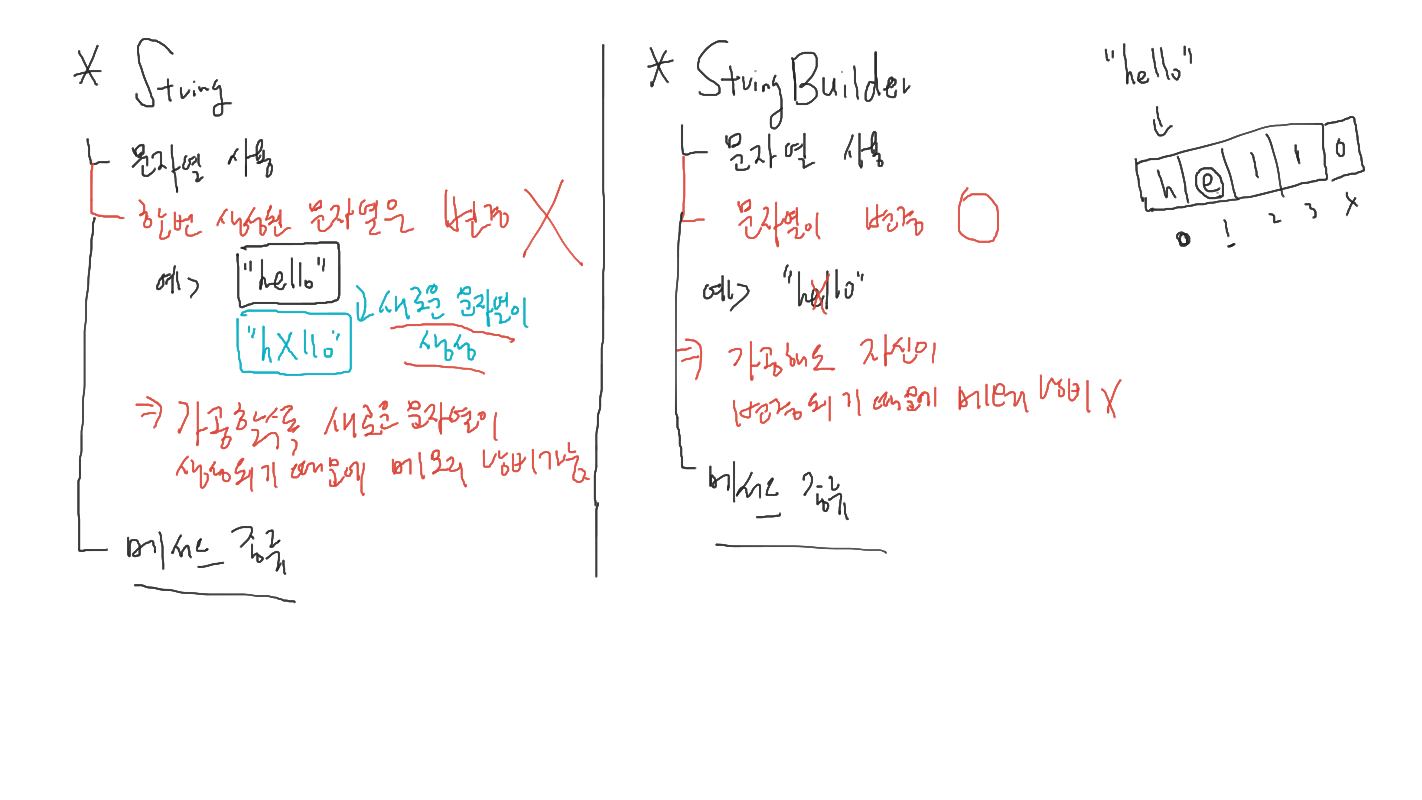 * String
문자열 사용
한번 생성한 문자열은 변경 X
예> "hello"
"hXllo"
새로운 문자열이
생성
⇒ 가공할수록 새로운 문자열이
생성되기 때문에 메모리 낭비가능
메서드 종류
* StringBuilder
문자열 사용
문자열이 변경 O
예> "hello"
⇒ 가공해도 자신이
변경되기 때문에 메모리 낭비 X
메서드 종류
"hello"
h e l l o
0 1 2 3 4